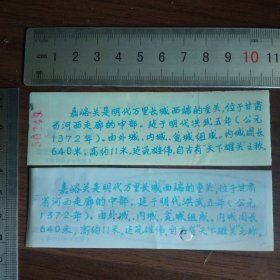 8 9 10 11
嘉峪关是明代万里长城西端的重关，位于甘肃
省河西走廊的中部。建于明代洪武五年（公元
1372年）。由外城、内城、瓮城组成。内城周长
640米，高约11米，建筑雄伟，自古有“天下雄关”之称。
嘉峪关是明代万里长城西端的重关，位于甘肃
省河西走廊的中部。建于明代洪武五年（公元
1372年）。由外城、内城、瓮城组成。内城周长
640米，高约11米，建筑雄伟，自古有“天下雄关”之称。